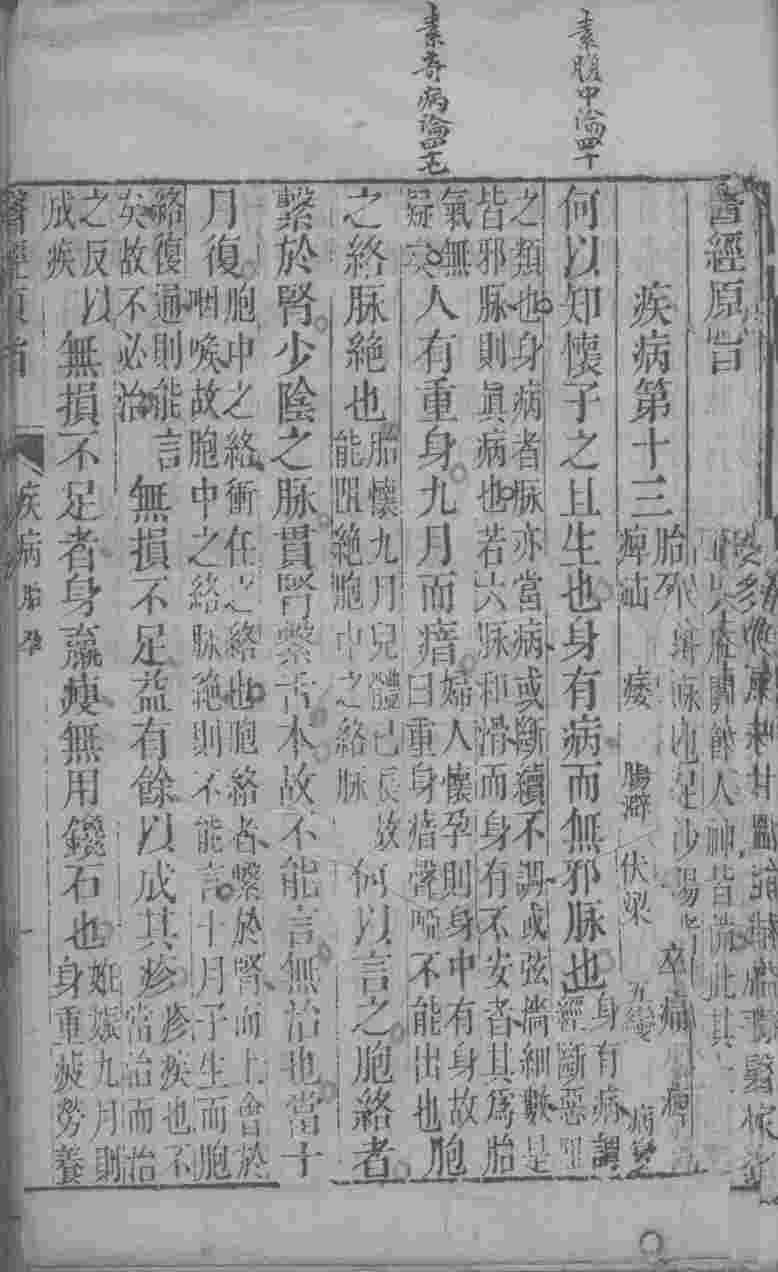 素腹中論四十
素奇病論四十七
醫經原旨
疾病第十三
胎孕
痺疝 痿 腸澼 伏梁
何以知懷子之且生也身有病而無邪脉也身有病謂經斷惡阻
之類也身病者脉亦當病或斷續不調或弦濇細數是
皆邪脉則眞病也若六脉和滑而身有不安者其爲胎
氣無疑矣人有重身九月而瘖婦人懷孕則身中有身故曰重身瘖聲啞不能出也胞
之絡脉絶也胎懷九月兒體已長故能阻絶胞中之絡脉何以言之胞絡者
繫於腎少陰之脉貫腎繫舌本故不能言無治也當十
月復胞中之絡衝任之絡也胞絡者繫於腎而上會於咽喉故胞中之絡脉絶則不能言十月子生而胞
絡復通則能言矣故不必治無損不足益有餘以成其疹疹疾也不當治而治
之反成疾以無損不足者身羸瘦無用鑱石也妊娠九月則身重疲勞養
醫經原旨 疾病 胎孕